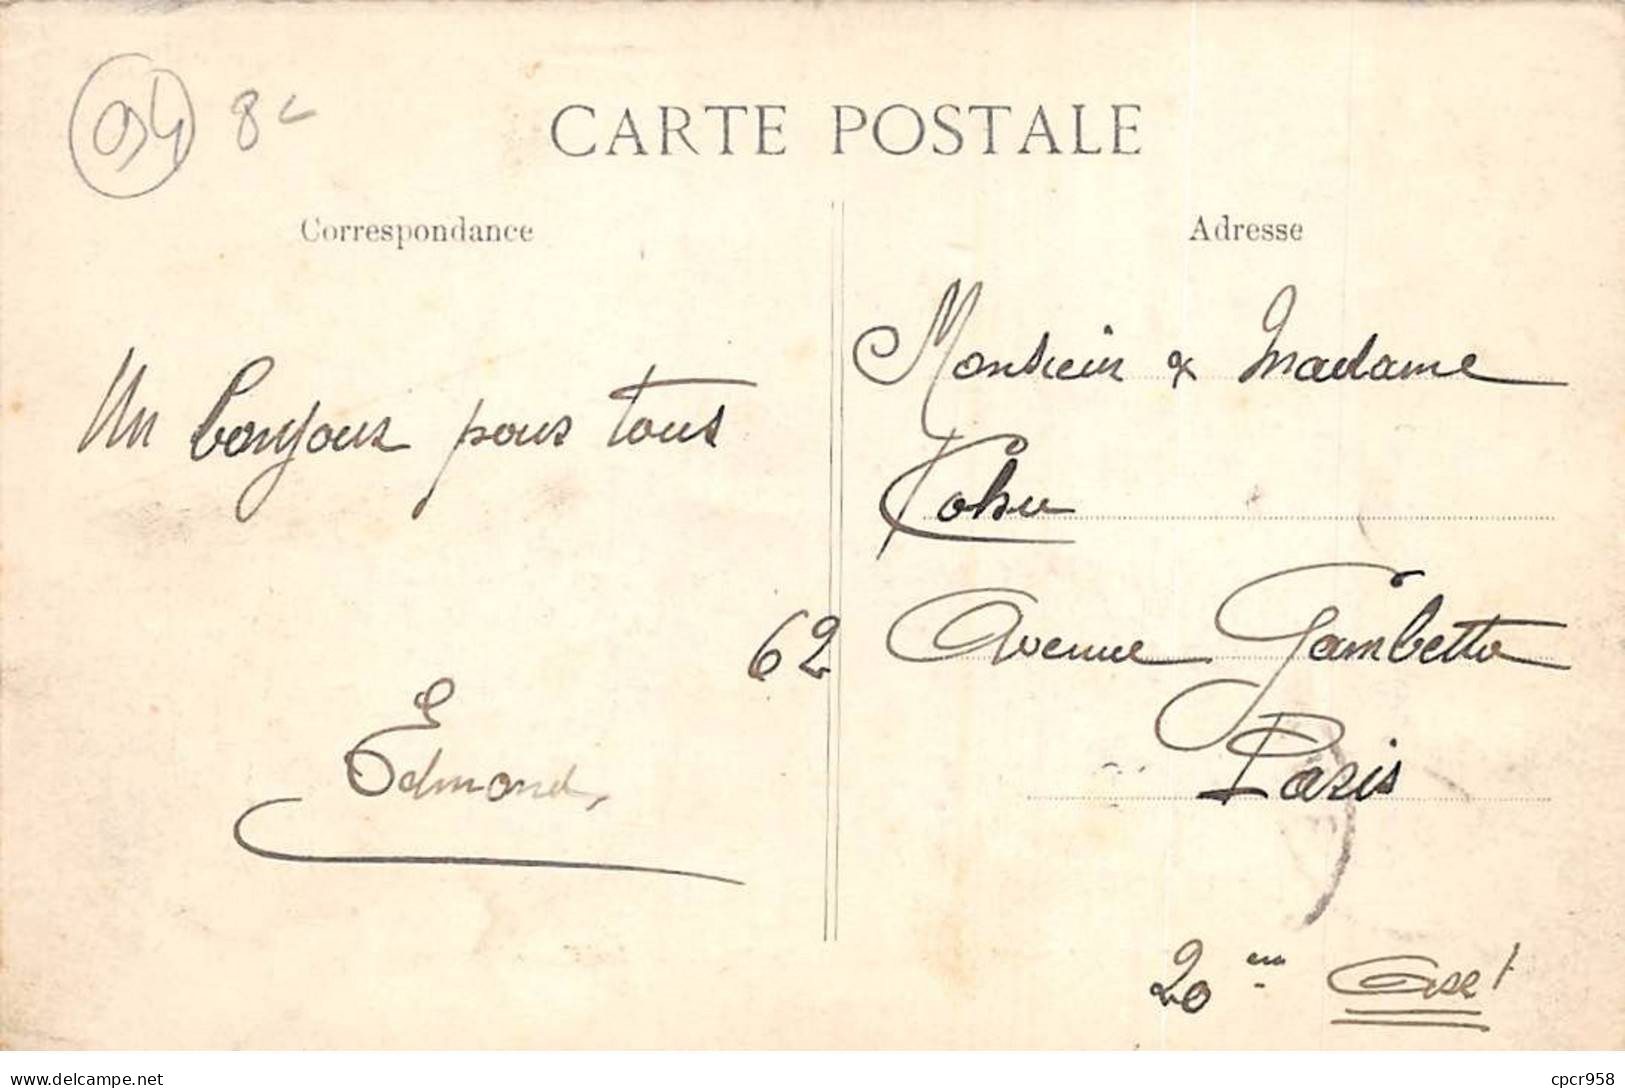 94 8
CARTE POSTALE
Correspondance
Adresse
Un bonjour pour tous
Edmond,
Monsieur & Madame
Cohu
62 Avenue Gambetta
Paris
20 em
delcampe.net
cpcr958